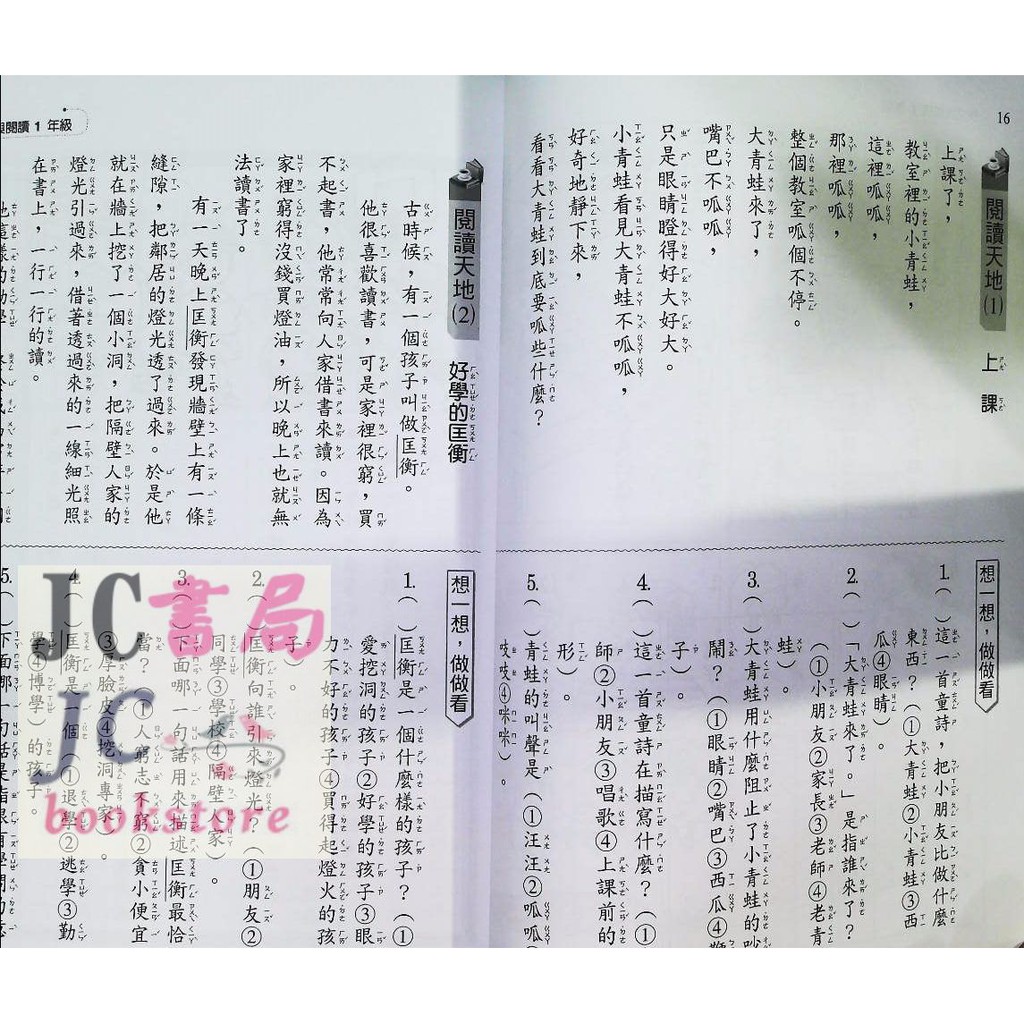 16
閱讀天地(1) 上課
上課了，
教室裡的小青蛙，
這裡呱呱，
那裡呱呱，
整個教室呱個不停。
大青蛙來了，
嘴巴不呱呱，
只是眼睛瞪得好大好大。
小青蛙看見大青蛙不呱呱，
好奇地靜下來，
看看大青蛙到底要呱些什麼？
想一想，做做看
1.( )這一首童詩，把小朋友比做什麼
東西？(①大青蛙②小青蛙③西
瓜④眼睛)。
2.( )「大青蛙來了。」是指誰來了？
(①小朋友②家長③老師④老青
蛙)。
3.( )大青蛙用什麼阻止了小青蛙的吵
鬧？(①眼睛②嘴巴③西瓜④
子)。
4.( )這一首童詩在描寫什麼？(①
師②小朋友③唱歌④上課前的
形)。
5.( )青蛙的叫聲是(①汪汪②呱呱
吱吱④咪咪)。
閱讀1年級
閱讀天地(2) 好學的匡衡
古時候，有一個孩子叫做匡衡。
他很喜歡讀書，可是家裡很窮，買
不起書，他常常向人家借書來讀。因為
家裡窮得沒錢買燈油，所以晚上也就無
法讀書了。
有一天晚上匡衡發現牆壁上有一條
縫隙，把鄰居的燈光透了過來。於是他
就在牆上挖了一個小洞，把隔壁人家的
燈光引過來，借著透過來的一線細光照
在書上，一行一行的讀。
想一想，做做看
1.( )匡衡是一個什麼樣的孩子？(①
愛挖洞的孩子②好學的孩子③眼
力不好的孩子④買得起燈火的孩
子)。
2.( )匡衡向誰引來燈光？(①朋友②
同學③學校④隔壁人家)。
3.( )下面哪一句話用來描述匡衡最恰
當？①人窮志不窮②貪小便宜
③厚臉皮④挖洞專家)。
4.( )匡衡是一個(①退學②逃學③勤
學④博學)的孩子。
5.( )下面那一句話是指很有學問的
JC書局
JC
bookstore